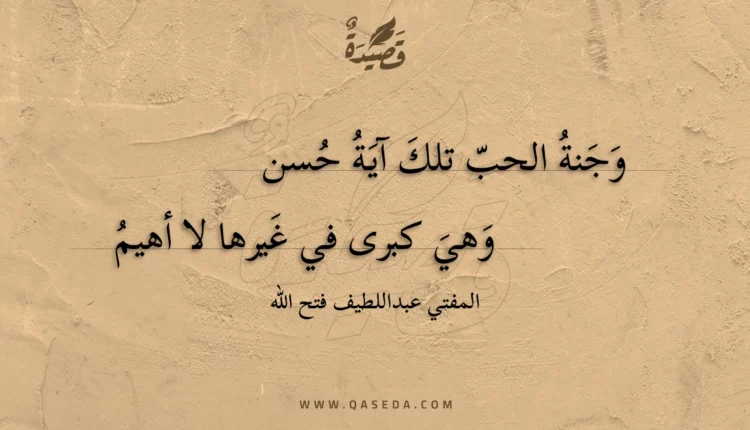 قَصِيْدَةٌ
وَجَنةُ الحبّ تلكَ آيَةُ حُسن
وَهيَ كبرى في غَيرها لا أهيمُ
المفتي عبداللطيف فتح الله
WWW.QASEDA.COM